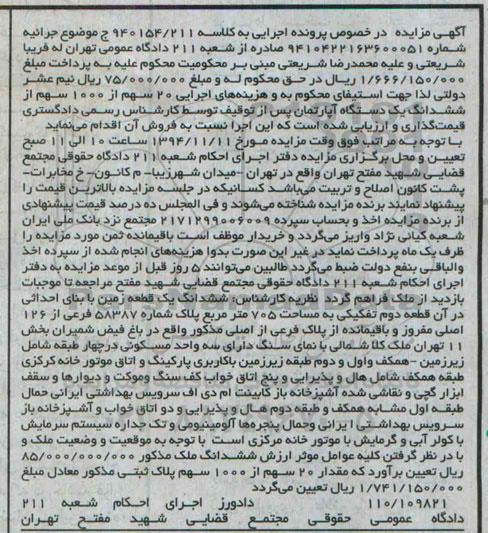 آگهی مزایده در خصوص پرونده اجرایی به کلاسه 940154/211 ج موضوع جرائیه
شماره 9410422163600051 صادره از شعبه 211 دادگاه عمومی تهران له فریبا
شریعتی و علیه محمدرضا شریعتی مبنی بر محکومیت محکوم علیه به پرداخت مبلغ
1/666/150/000 ریال در حق محکوم له و مبلغ 75/000/000 ریال نیم عشر
دولتی لذا جهت استیفای محکوم به و هزینه‌های اجرایی 20 سهم از 1000 سهم از
ششدانگ یک دستگاه آپارتمان پس از توقیف توسط کارشناس رسمی دادگستری
قیمت‌گذاری و ارزیابی شده است که این اجرا نسبت به فروش آن اقدام می‌نماید
با توجه به مراتب فوق وقت مزایده مورخ 1394/11/11 ساعت 10 الی 11 صبح
تعیین و محل برگزاری مزایده دفتر اجرای احکام شعبه 211 دادگاه حقوقی مجتمع
قضایی شهید مفتح تهران واقع در تهران -میدان شهرزیبا- م کانون- خ مخابرات-
پشت کانون اصلاح و تربیت می‌باشد کسانیکه در جلسه مزایده بالاترین قیمت را
پیشنهاد نمایند برنده مزایده شناخته می‌شوند و فی المجلس ده درصد قیمت پیشنهادی
از برنده مزایده اخذ و بحساب سپرده 2171299006009 مجتمع نزد بانک ملی ایران
شعبه کیانی نژاد واریز می‌گردد و خریدار موظف است باقیمانده ثمن مورد مزایده را
ظرف یک ماه پرداخت نماید در غیر این صورت بدوا هزینه‌های انجام شده از سپرده اخذ
والباقی بنفع دولت ضبط می‌گردد طالبین می‌توانند 5 روز قبل از موعد مزایده به دفتر
اجرای احکام شعبه 211 دادگاه حقوقی مجتمع قضایی شهید مفتح مراجعه تا موجبات
بازدید از ملک فراهم گردد نظریه کارشناس: ششدانگ یک قطعه زمین با بنای احداثی
در آن قطعه دوم تفکیکی به مساحت 705 متر مربع پلاک شماره 58387 فرعی از 126
اصلی مفروز و باقیمانده از پلاک فرعی از اصلی مذکور واقع در باغ فیض شمیران بخش
11 تهران ملک کلا شمالی با نمای سنگ دارای سه واحد مسکونی درچهار طبقه شامل
زیرزمین -همکف واول و دوم طبقه زیرزمین باکاربری پارکینگ و اتاق موتور خانه کرکزی
طبقه همکف شامل هال و پذیرایی و پنج اتاق خواب کف سنگ وموکت و دیوارها و سقف
ابزار گچی و نقاشی شده آشپزخانه باز کابینت ام دی اف سرویس بهداشتی ایرانی حمال
طبقه اول مشابه همکف و طبقه دوم هال و پذیرایی و دو اتاق خواب و آشپزخانه باز
سرویس بهداشتی ایرانی وحمال پنجره‌ها آلومینیومی و تک جداره سیستم سرمایش
با کولر آبی و گرمایش با موتور خانه مرکزی است با توجه به موقعیت و وضعیت ملک و
با در نظر گرفتن کلیه عوامل موثر ارزش ششدانگ ملک مذکور 85/000/000/000
ریال تعیین برآورد که مقدار 20 سهم از 1000 سهم پلاک ثبتی مذکور معادل مبلغ
1/741/150/000 ریال تعیین می‌گردد
110/109821 دادورز اجرای احکام شعبه 211
دادگاه عمومی حقوقی مجتمع قضایی شهید مفتح تهران